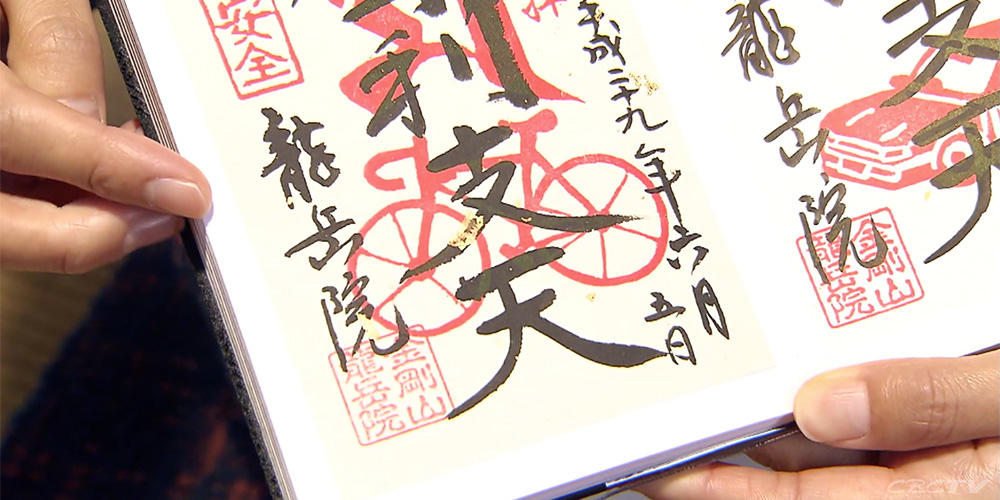 支天
龍岳院
金剛山
龍岳院
拝
平成二十九年六月
五日
利支天
安全
龍岳院
金剛山
龍岳院
CBCTV